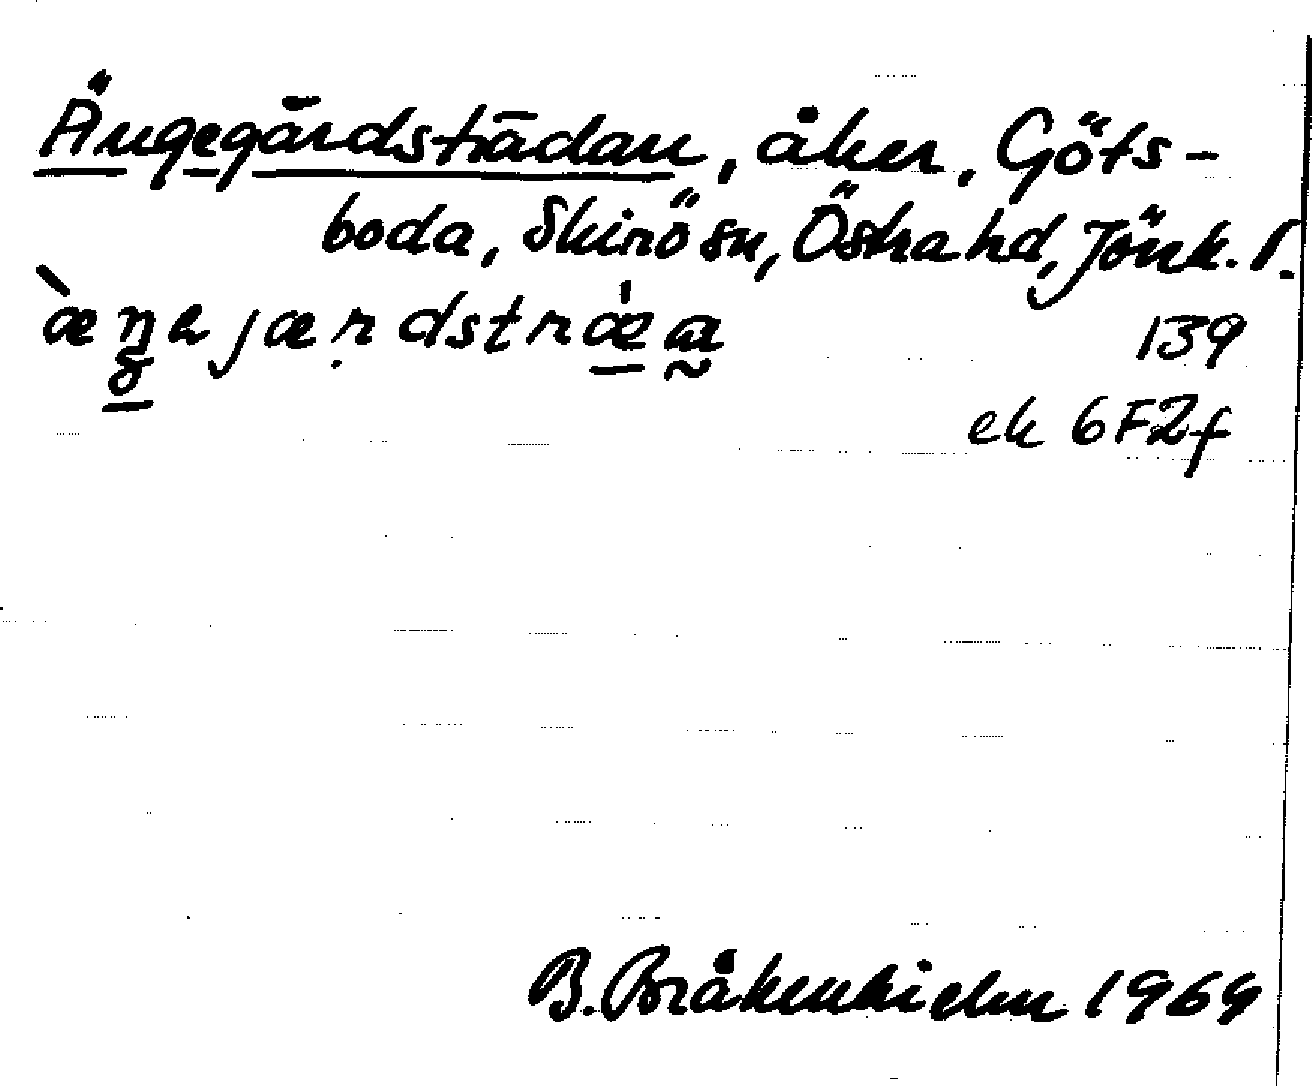 Ängegärdsträdan, åker, Göts-
boda, Skirö sn, Östra hd, Jönk. l.
æŋejærdstræa
139
ek 6F2f
B. Bråkenhielm 1969